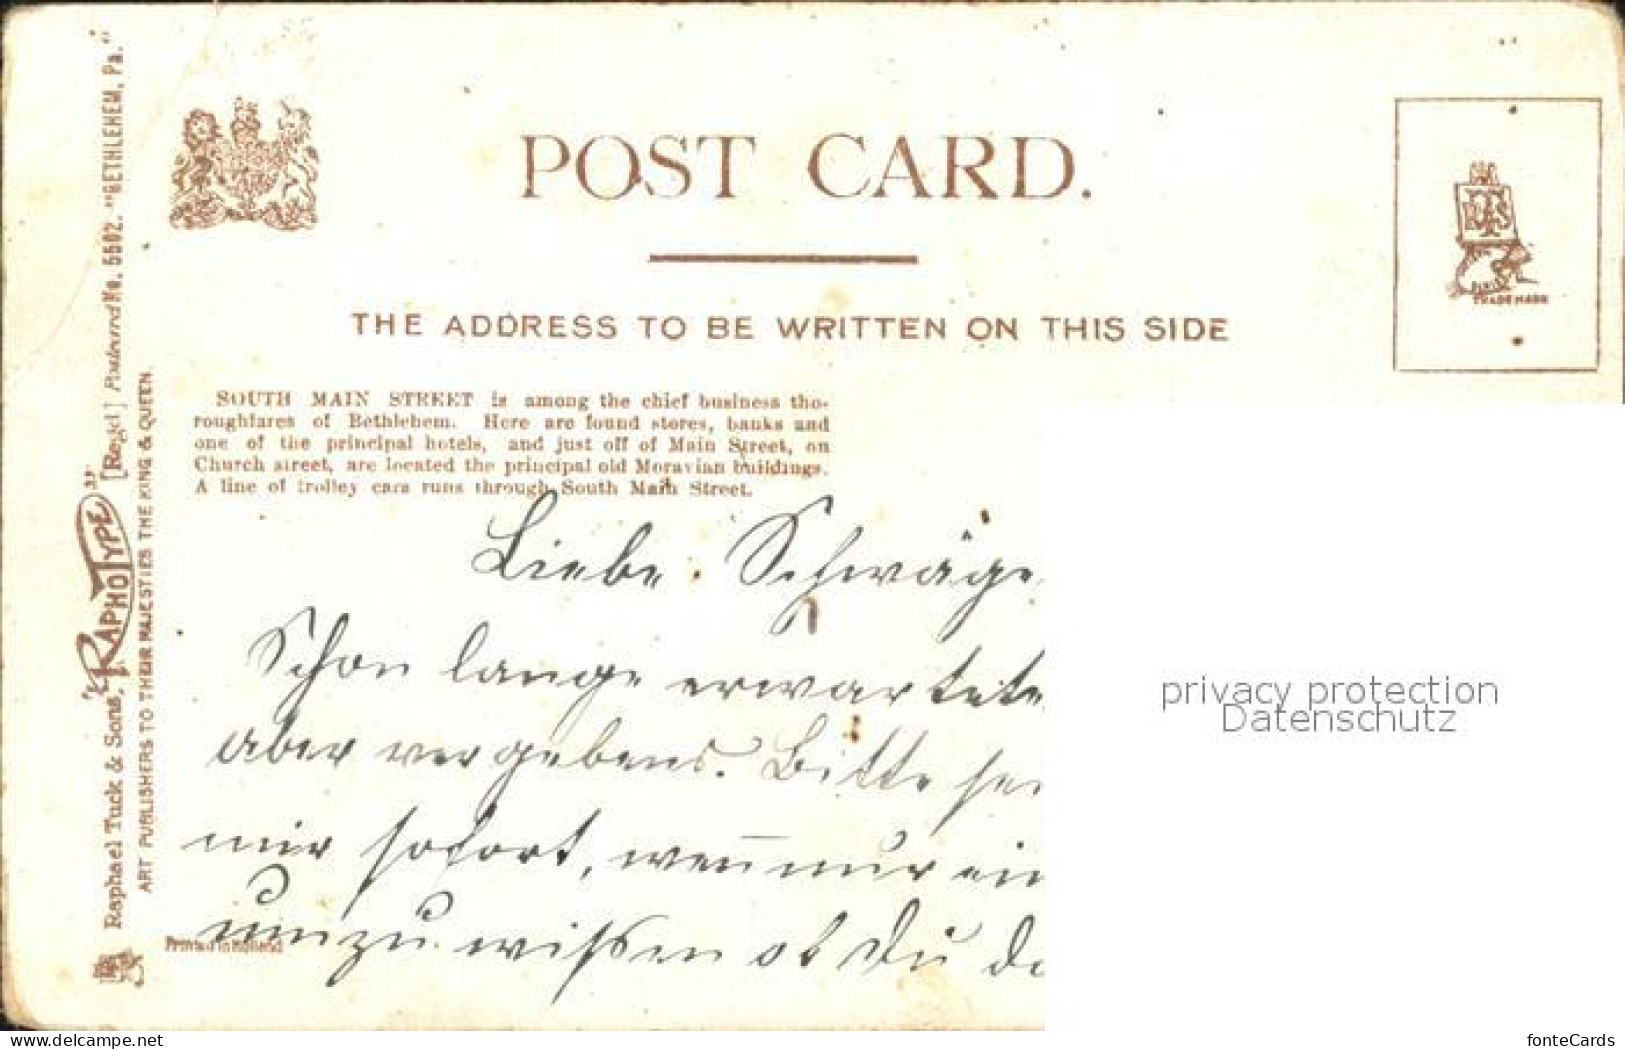 POST CARD.
THE ADDRESS TO BE WRITTEN ON THIS SIDE
SOUTH MAIN STREET is among the chief business tho-
roughfares of Bethlehem. Here are found stores, banks and
one of the principal hotels, and just off of Main Street, on
Church street, are located the principal old Moravian buildings.
A line of trolley cars runs through South Main Street.
Liebe Schwäge
Schon lange erwartete
aber vergebens. Bitte
mir sofort, wen̅ nur ein
um zu wissen ob Du
Raphael Tuck & Sons, "RAPHOTYPE" [Regd] Postcard No. 5502. "BETHLEHEM, Pa."
ART PUBLISHERS TO THEIR MAJESTIES THE KING & QUEEN.
Printed in Holland
TRADE MARK
privacy protection
Datenschutz
www.delcampe.net
fonteCards